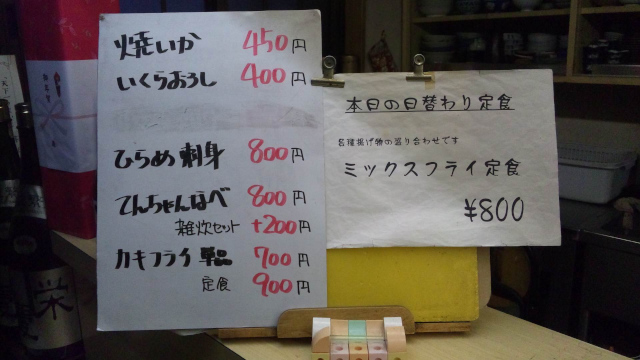 焼いか 450円
いくらおろし 400円
ひらめ刺身 800円
てんちゃんなべ 800円
雑炊セット +200円
カキフライ 単品 700円
定食 900円
本日の日替わり定食
各種揚げ物の盛り合わせです
ミックスフライ定食
¥800
栄